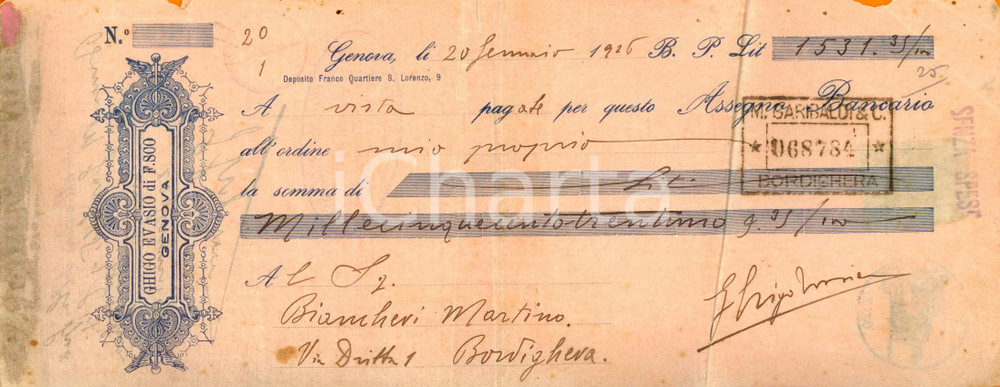 N.º
20
1
Genova, li 20 Gennaio 1926 B. P. Lit 1531.35/100
Deposito Franco Quartiere S. Lorenzo, 9
25
A vista pagate per questo Assegno Bancario
all'ordine mio proprio
la somma di Lit.
Millecinquecentotrentuno 9. 35/100
A l Sg.
Biancheri Martino.
Via Dritta 1 Bordighera.
GHIGO EVASIO di F.sco
GENOVA
M. GARIBALDI & C.
* 068784 *
BORDIGHERA
SENZA SPESE
iCharta